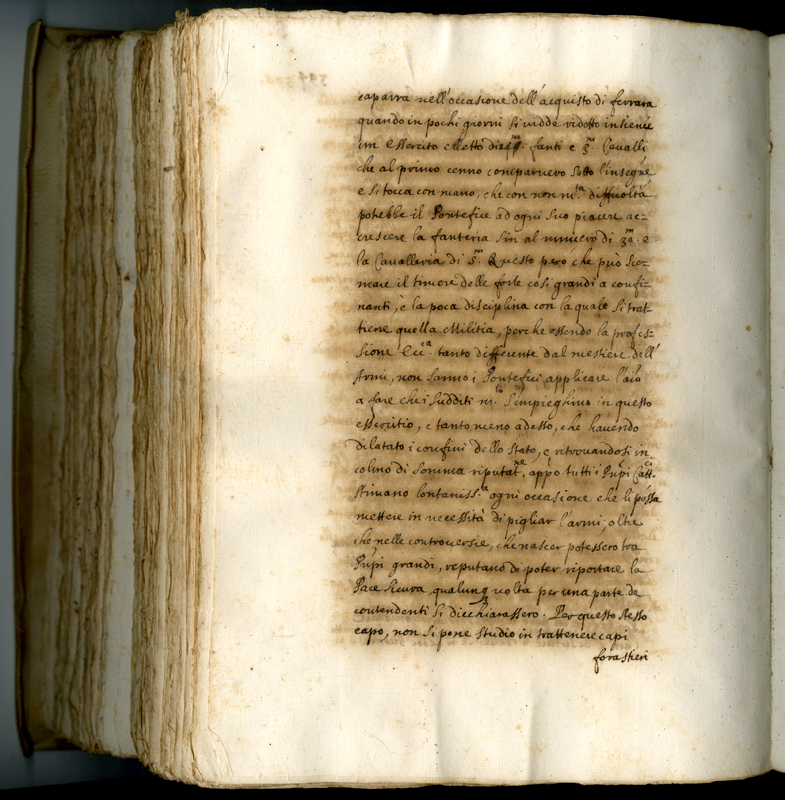 caparra nell'occasione dell'acquisto di ferrara
quando in pochi giorni si vidde ridotto insieme
un Essercito eletto di fanti e 3.m Cavalli
che al primo cenno comparvero sotto l'insegne
e si tocca con mano, che con non m.ta difficoltà
potebbe il Pontefice ad ogni suo piacere ac=
crescere la fanteria sin al numero di 30.m e
la Cavalleria di 5.m Questo però che può sce=
mare il timore delle forze così grandi a confi=
nanti, è la poca disciplina con la quale si trat=
tiene quella Militia, perche essendo la profes=
sione Ecc.ca tanto differente dal mestiere dell'
Armi, non sanno i Pontefici applicare l'aio
a fare che i sudditi m.to s'impieghino in questo
essercitio, e tanto meno adesso, che havendo
dilatato i confini dello stato, e ritrovandosi in
colmo di somma riputat.ne, appo tutti i Prnpi Catt.ci
stimano lontaniss.a ogni occasione che li possa
mettere in necessità di pigliar l'armi; oltre
che nelle controversie, che nascer potessero tra
Prnpi grandi, reputano di poter riportare la
Pace sicura qualunq volta per una parte de
contendenti si dicchiarassero. Per questo stesso
capo, non si pone studio in trattenere capi
forastieri